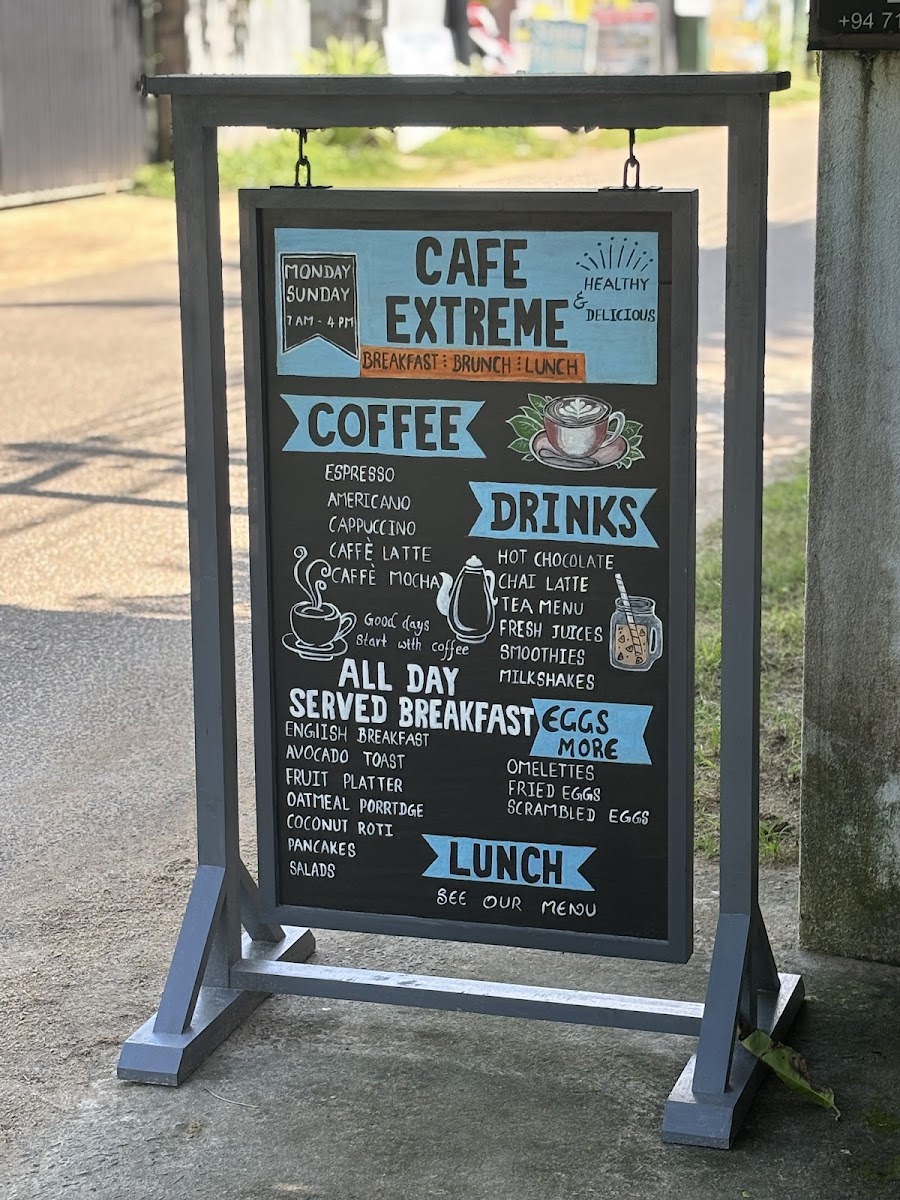 +94 71
MONDAY
SUNDAY
7 AM - 4 PM
CAFE
EXTREME
HEALTHY
&
DELICIOUS
BREAKFAST : BRUNCH : LUNCH
COFFEE
ESPRESSO
AMERICANO
CAPPUCCINO
CAFFÈ LATTE
CAFFÈ MOCHA
Good days
start with coffee
DRINKS
HOT CHOCOLATE
CHAI LATTE
TEA MENU
FRESH JUICES
SMOOTHIES
MILKSHAKES
ALL DAY
SERVED BREAKFAST
ENGIISH BREAKFAST
AVOCADO TOAST
FRUIT PLATTER
OATMEAL PORRIDGE
COCONUT ROTI
PANCAKES
SALADS
EGGS
MORE
OMELETTES
FRIED EGGS
SCRAMBLED EGGS
LUNCH
SEE OUR MENU